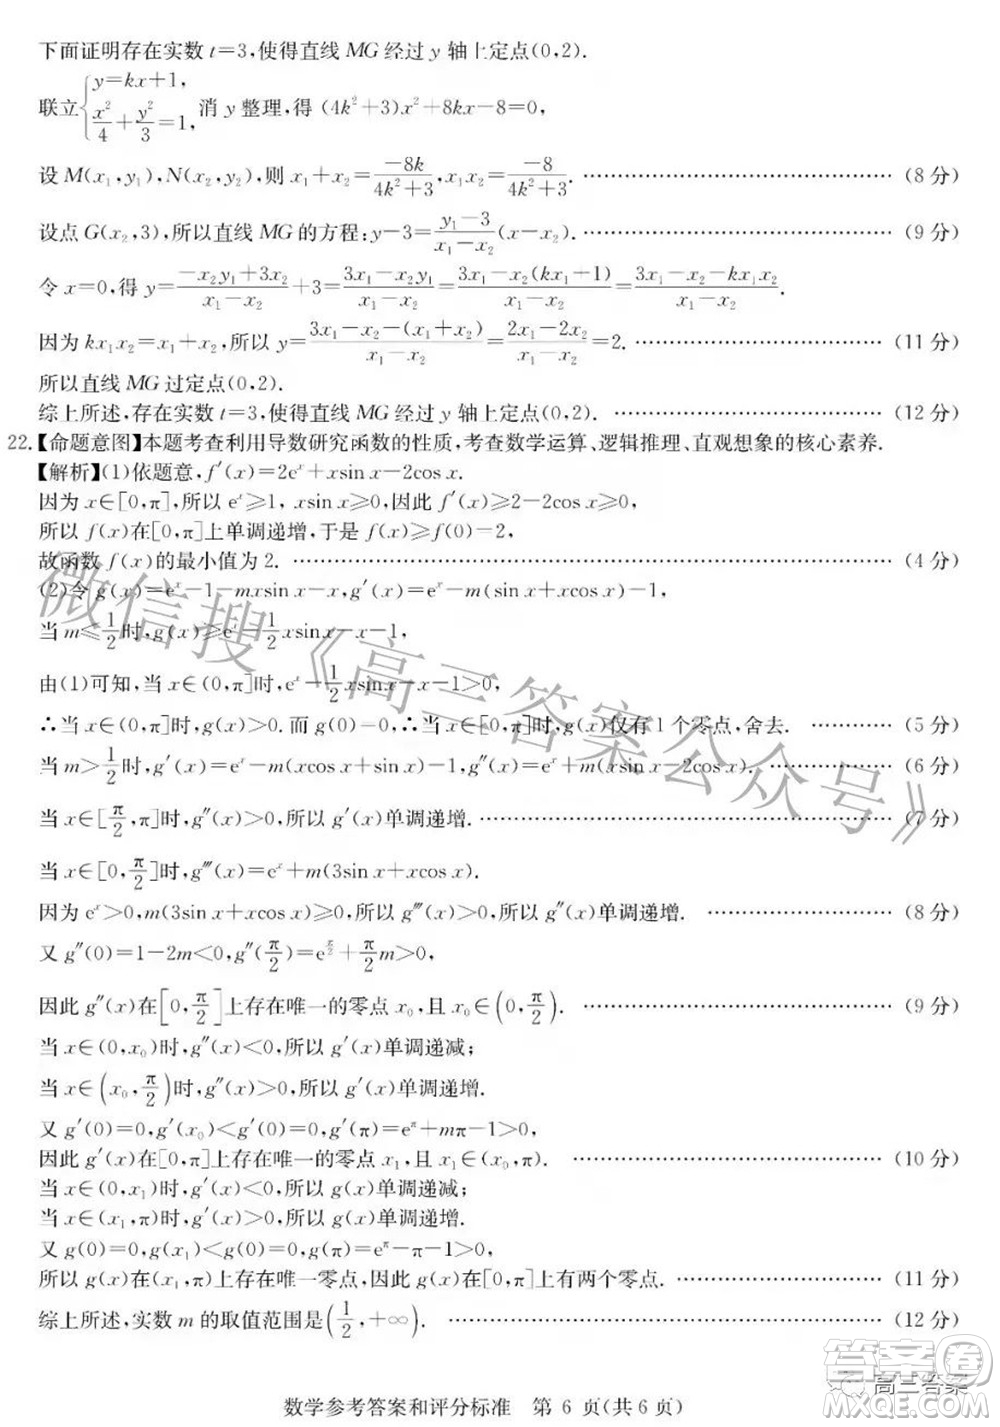 下面证明存在实数 t=3,使得直线 MG 经过 y 轴上定点(0,2).
联立{y=kx+1, x²/4+y²/3=1, 消 y 整理,得 (4k²+3)x²+8kx-8=0,
设 M(x₁,y₁),N(x₂,y₂),则 x₁+x₂=-8k/(4k²+3),x₁x₂=-8/(4k²+3). ………… (8 分)
设点 G(x₂,3),所以直线 MG 的方程:y-3=(y₁-3)/(x₁-x₂)(x-x₂). ………… (9 分)
令 x=0,得 y=(-x₂y₁+3x₂)/(x₁-x₂)+3=(3x₁-x₂y₁)/(x₁-x₂)=(3x₁-x₂(kx₁+1))/(x₁-x₂)=(3x₁-x₂-kx₁x₂)/(x₁-x₂).
因为 kx₁x₂=x₁+x₂,所以 y=(3x₁-x₂-(x₁+x₂))/(x₁-x₂)=(2x₁-2x₂)/(x₁-x₂)=2. ………… (11 分)
所以直线 MG 过定点(0,2).
综上所述,存在实数 t=3,使得直线 MG 经过 y 轴上定点(0,2). ………… (12 分)
22.【命题意图】本题考查利用导数研究函数的性质,考查数学运算、逻辑推理、直观想象的核心素养.
【解析】(1)依题意,f′(x)=2eˣ+xsin x-2cos x.
因为 x∈[0,π],所以 eˣ≥1, xsin x≥0,因此 f′(x)≥2-2cos x≥0,
所以 f(x)在[0,π]上单调递增,于是 f(x)≥f(0)=2,
故函数 f(x)的最小值为 2. ………… (4 分)
(2)令 g(x)=eˣ-1-mxsin x-x,g′(x)=eˣ-m(sin x+xcos x)-1,
当 m≤1/2时,g(x)≥eˣ-1/2xsin x-x-1,
由(1)可知,当 x∈(0,π]时,eˣ-1/2xsin x-x-1>0,
∴当 x∈(0,π]时,g(x)>0.而 g(0)=0,∴当 x∈[0,π]时,g(x)仅有 1 个零点,舍去. ………… (5 分)
当 m>1/2时,g′(x)=eˣ-m(xcos x+sin x)-1,g″(x)=eˣ+m(xsin x-2cos x). ………… (6 分)
当 x∈[π/2,π]时,g″(x)>0,所以 g′(x)单调递增. ………… (7 分)
当 x∈[0,π/2]时,g‴(x)=eˣ+m(3sin x+xcos x).
因为 eˣ>0,m(3sin x+xcos x)≥0,所以 g‴(x)>0,所以 g″(x)单调递增. ………… (8 分)
又 g″(0)=1-2m<0,g″(π/2)=e^(π/2)+π/2m>0,
因此 g″(x)在[0,π/2]上存在唯一的零点 x₀,且 x₀∈(0,π/2). ………… (9 分)
当 x∈(0,x₀)时,g″(x)<0,所以 g′(x)单调递减;
当 x∈(x₀,π/2)时,g″(x)>0,所以 g′(x)单调递增.
又 g′(0)=0,g′(x₀)<g′(0)=0,g′(π)=e^π+mπ-1>0,
因此 g′(x)在[0,π]上存在唯一的零点 x₁,且 x₁∈(x₀,π). ………… (10 分)
当 x∈(0,x₁)时,g′(x)<0,所以 g(x)单调递减;
当 x∈(x₁,π)时,g′(x)>0,所以 g(x)单调递增.
又 g(0)=0,g(x₁)<g(0)=0,g(π)=e^π-π-1>0,
所以 g(x)在(x₁,π)上存在唯一零点,因此 g(x)在[0,π]上有两个零点. ………… (11 分)
综上所述,实数 m 的取值范围是(1/2,+∞). ………… (12 分)
数学参考答案和评分标准 第 6 页(共 6 页)
微信搜《高三答案公众号》
高三答案
答案圈
MXQE.COM